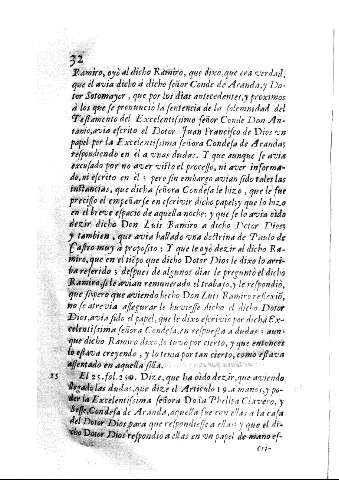 32
Ramiro, oyò al dicho Ramiro, que dixo, que era verdad,
que èl avia dicho à dicho señor Conde de Aranda, y Do-
tor Sotomayor, que por los dias antecedentes, y proximos
à los que se pronunciò la sentencia de la solemnidad del
Testamento del Excelentissimo señor Conde Don An-
tonio, avia escrito el Dotor Juan Francisco de Dios un
papel por la Excelentissima señora Condesa de Aranda
respondiendo en èl a unas dudas. Y que aunque se avia
escusado por no aver visto el processo, ni aver informa-
do, ni escrito en èl; pero sin embargo avian sido tales las
instancias, que dicha señora Condesa le hizo, que le fue
precisso el empeñarse en escrivir dicho papel; y que lo hizo
en el breve espacio de aquella noche; y que se lo avia oìdo
dezir dicho Don Luis Ramiro a dicho Dotor Dios;
y tambien, que avia hallado una dotrina de Paulo de
Castro muy à proposito; Y que le oyò dezir al dicho Ra-
miro, que en el tiẽpo que dicho Dotor Dios le dixo lo arri-
ba referido; despues de algunos dias le preguntò el dicho
Ramiro, si le avian remunerado el trabajo, y le respondiò,
que si; pero que aviendo hecho Don Luis Ramiro reflexiõ,
no se atrevia assegurar le huviesse dicho el dicho Dotor
Dios, avia sido el papel, que le dixo escrivio por dicha Ex-
celentissima señora Condesa, en respuesta a dudas; aun-
que dicho Ramiro dixo, lo tuvo por cierto, y que entonces
lo estava creyendo, y lo tenia por tan cierto, como estava
assentado en aquella silla.
25 El 25. fol. 250. Dize, que ha oìdo dezir, que aviendo
llegado las dudas, que dize el Articulo 19. a manos, y po-
der la Excelentissima señora Doña Phelipa Clavero, y
Sesse, Condesa de Aranda, aquella fue con ellas a la casa
del Dotor Dios para que respondiesse a ellas; y que el di-
cho Dotor Dios respondiò a ellas en un papel de mano es-
cri-